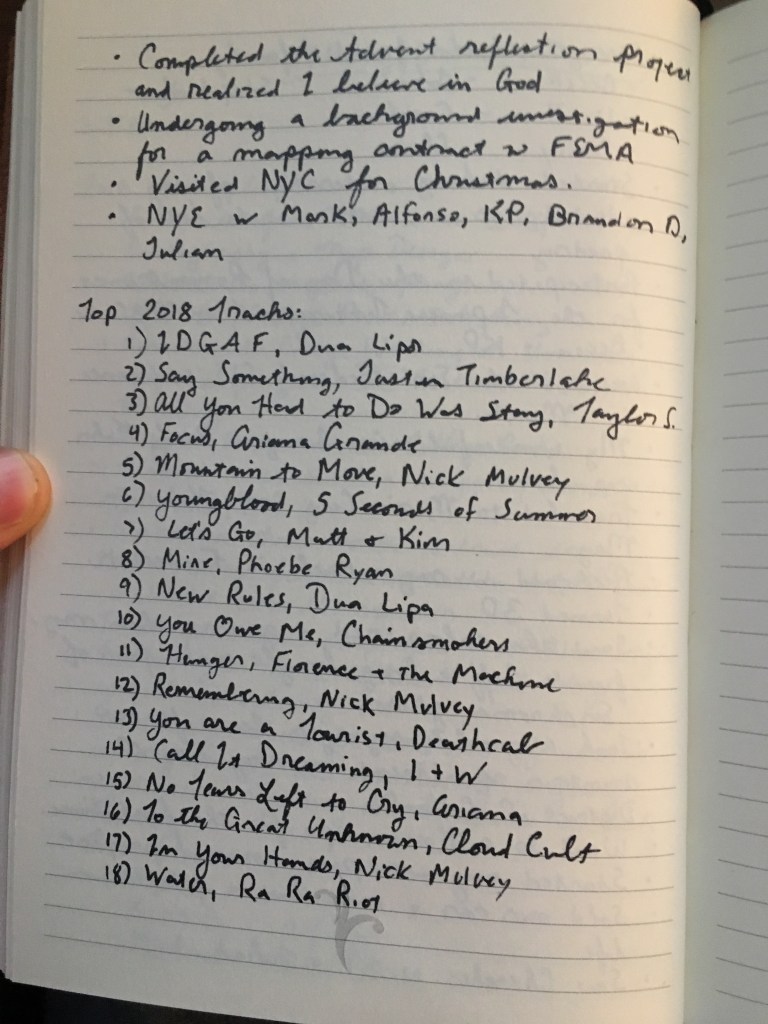 • Completed the Advent reflection project
and realized I believe in God
• Undergoing a background investigation
for a mapping contract w FEMA
• Visited NYC for Christmas.
• NYE w Mark, Alfonso, KP, Brandon D,
Julian
Top 2018 Tracks:
1) IDGAF, Dua Lipa
2) Say Something, Justin Timberlake
3) All You Had to Do Was Stay, Taylor S.
4) Focus, Ariana Grande
5) Mountain to Move, Nick Mulvey
6) Youngblood, 5 Seconds of Summer
7) Let's Go, Matt & Kim
8) Mine, Phoebe Ryan
9) New Rules, Dua Lipa
10) You Owe Me, Chainsmokers
11) Hunger, Florence + The Machine
12) Remembering, Nick Mulvey
13) You are a Tourist, Deathcab
14) Call It Dreaming, I + W
15) No Tears Left to Cry, Ariana
16) To the Great Unknown, Cloud Cult
17) In Your Hands, Nick Mulvey
18) Water, Ra Ra Riot